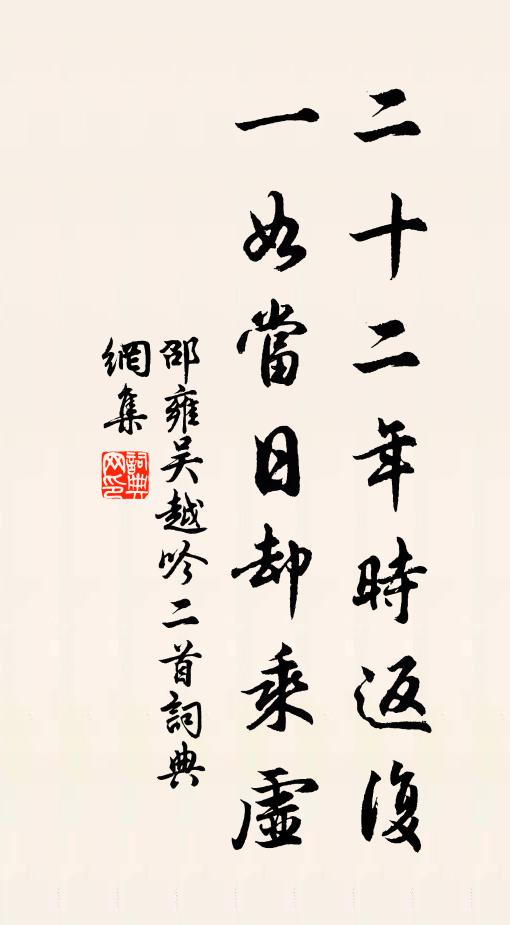 二十二年時返復
一如當日却乘虛
邵雍吳越吟二首詞典
網集
詞典網印